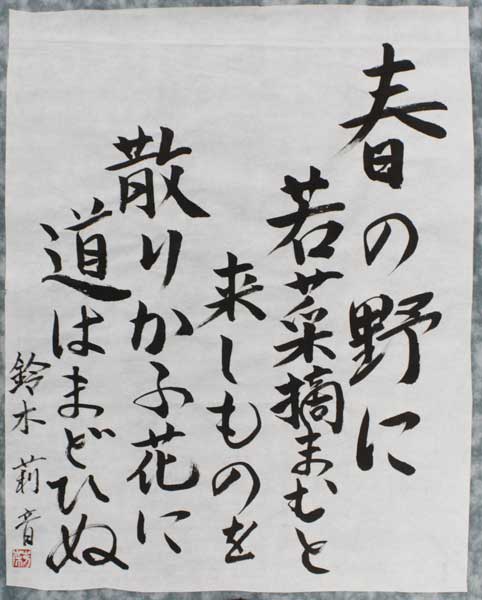 春の野に
若菜摘まむと
来しものを
散りかふ花に
道はまどひぬ
鈴木莉音